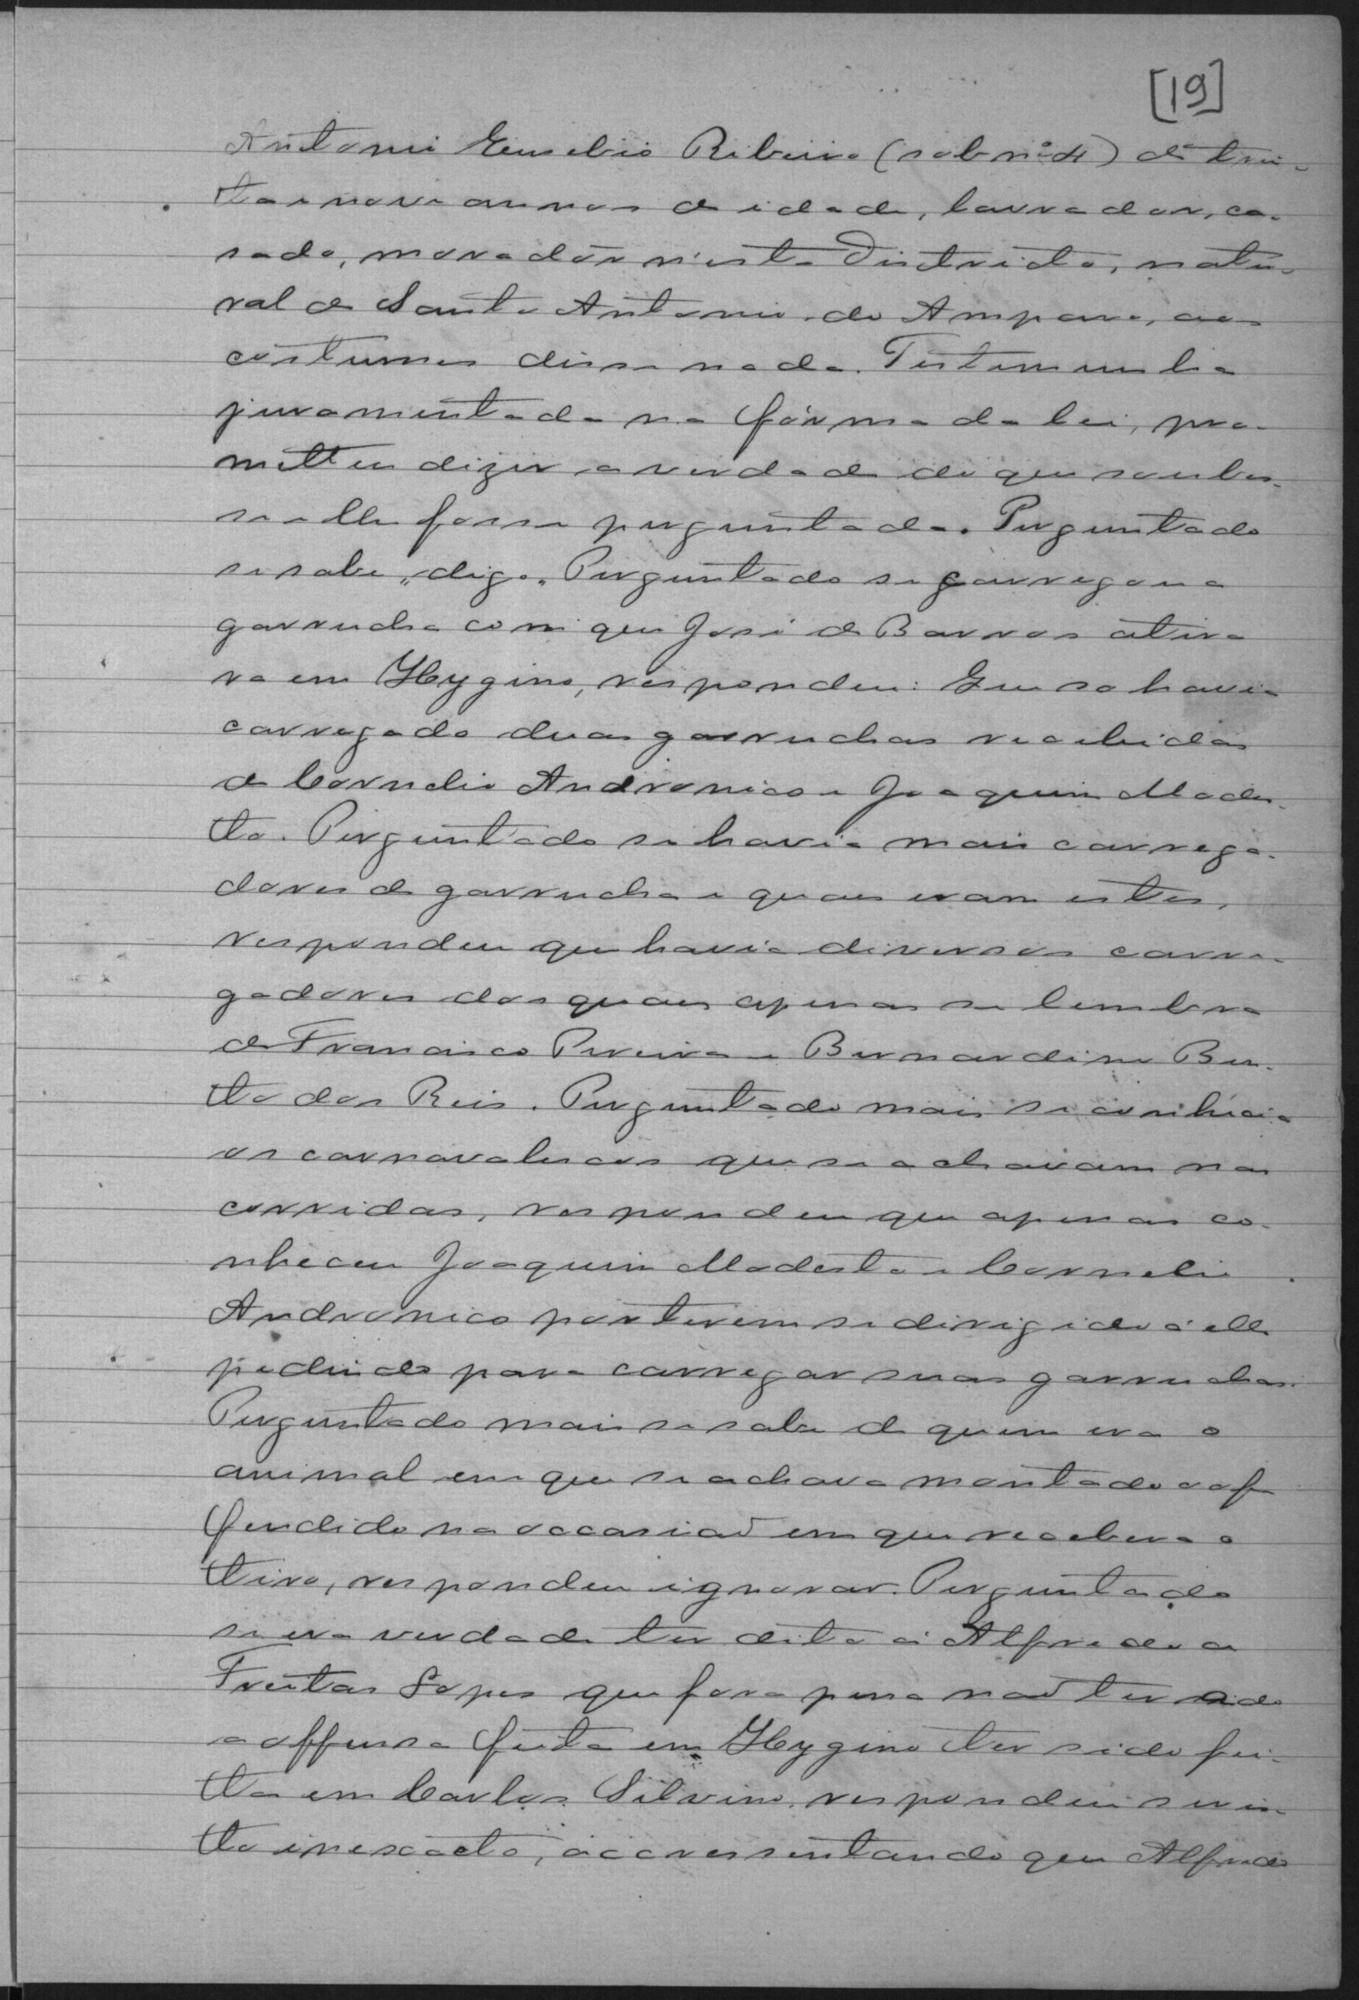 [19]
Antonio Euzebio Ribeiro (sob nº 4) de trin-
ta e nove annos de idade, lavrador, ca-
sado, morador n'esta Districto, natu-
ral de Santo Antonio do Amparo, aos
costumes disse nada. Testemunha
juramentada na fórma da lei, pro-
metteu dizer a verdade do que soubes-
se e lhe fosse perguntado. Perguntado
se sabe, digo, Perguntado se carregou a
garrucha com que José de Barros atira-
ra em Hygino, respondeu: Que so havia
carregado duas garruchas recebidas
de Cornelio Andronico e Joaquim Modes-
to. Perguntado se havia mais carrega-
dores de garrucha e quaes eram estes,
respondeu que havia diversos carre-
gadores dos quaes apenas se lembra
de Francisco Pereira e Bernardino Ben-
to dos Reis. Perguntado mais se conhecia
os carnavalescos que se achavam nas
corridas, respondeu que apenas co-
nheceu Joaquim Modesto e Cornelio
Andronico por terem se dirigido á elle
pedindo para carregar suas garruchas.
Perguntado mais se sabe de quem era o
animal em que se achava montado o of-
fendido na occasião em que recebera o
tiro, respondeu ignorar. Perguntado
se era verdade ter dito á Alfredo de
Freitas Lopes que fora pena não ter sido
a offensa feita em Hygino ter sido fei-
ta em Carlos Silvino, respondeu ser is-
to inexacto, accressentando que Alfredo